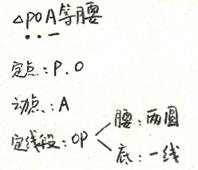 △POA等腰
定点:P.O
动点:A
定线段:OP
腰:两圆
底:一线